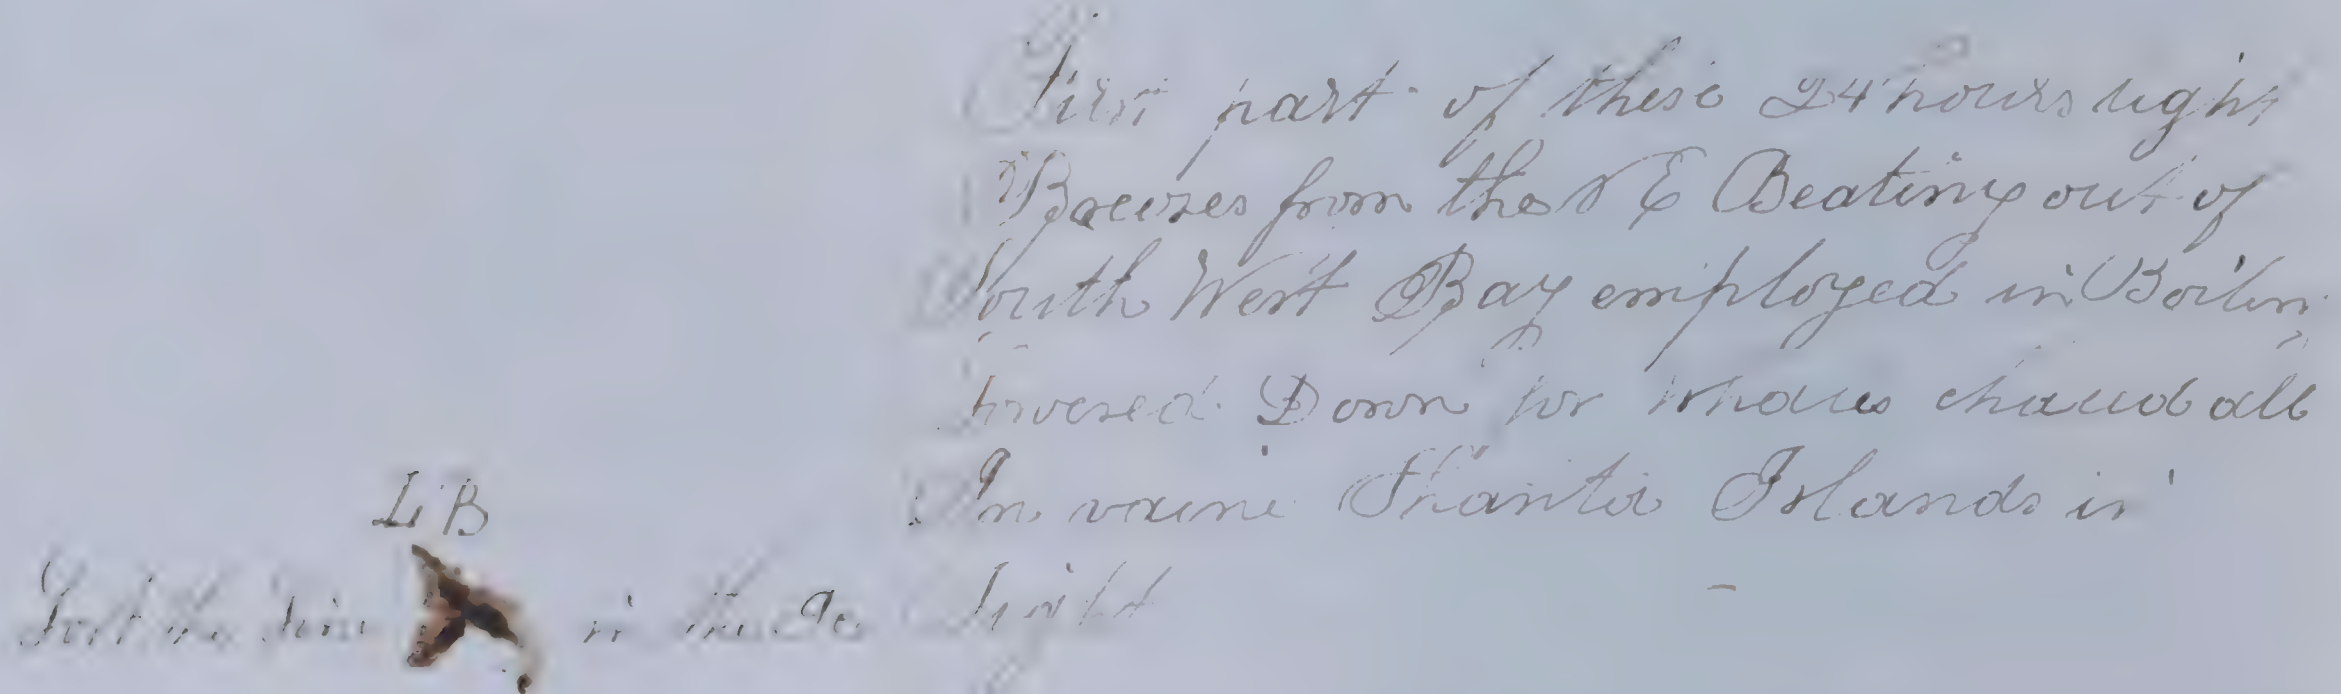 First part of these 24 hours light
Breezes from the N E Beating out of
South West Bay employed in Boiling
Lowered Down for whales chased all
In vaine Shanta Islands in
Sight
L B
Lost the Iron in the